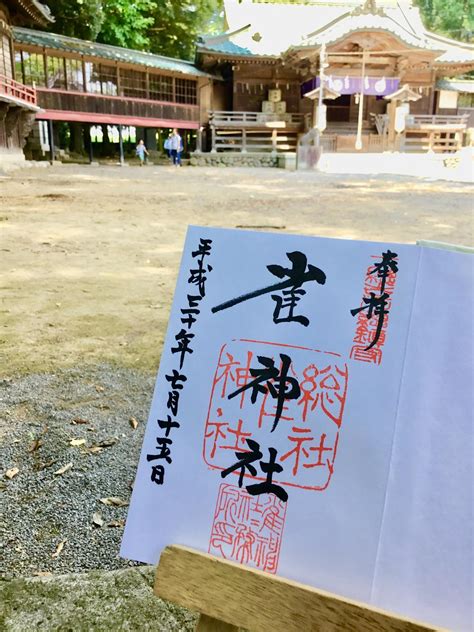 奉拝
雀神社
総社
雀
神社
平成三十年七月十五日